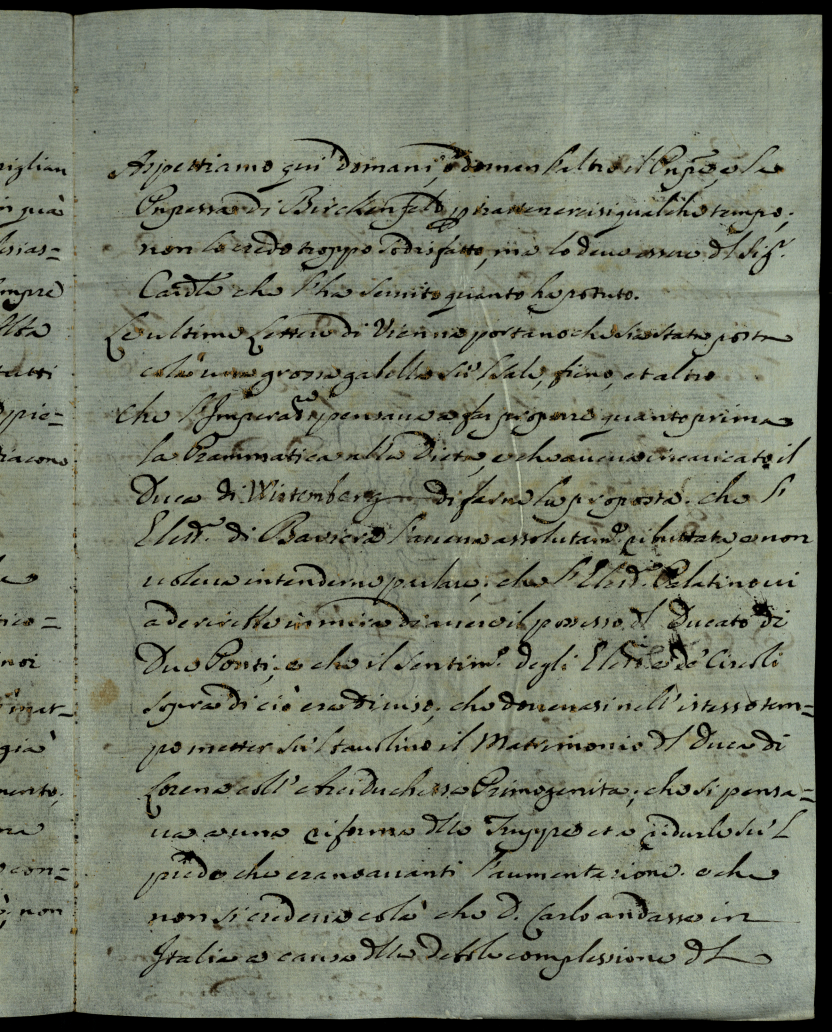 Aspettiamo qui domani, ò doman l'altro il Pnpe, e la
Pnpessa di Birckenfelt p trattenercisi qualche tempo;
non lo credo troppo sodisfatto, ma lo deve essere dl Sigr.
Cardle che l'ha servito quanto ha potuto.
Le ultime Lettere di Vienna portano che sia stata posta
colà una grossa gabella sù 'l sale, fieno, et altro
che l'Imperadre pensava a far proporre quanto prima
la Prammatica alla Dieta, e che aveva incaricato il
Duca di Wirtemberg di farne la proposta. che l'
Eletre. di Baviera l'aveva assolutamte. ributtata, e non
voleva intenderne parlare; che l'Eletre. Palatino vi
aderirebbe in mira di avere il possesso dl Ducato di
Due Ponti; e che il sentimto. degli Eletri e de' Circoli
sopra di ciò era diviso; che dovevasi nell'istesso tem=
po metter sù 'l tavolino il Matrimonio dl Duca di
Lorena coll'Arciduchessa Primogenita; che si pensa=
va a una riforma dlle Truppe et a ridurle sù 'l
piede che erano avanti l'aumentazione. e che
non si credeva colà che D. Carlo andasse in
Italia a causa dlla debole complessione dl